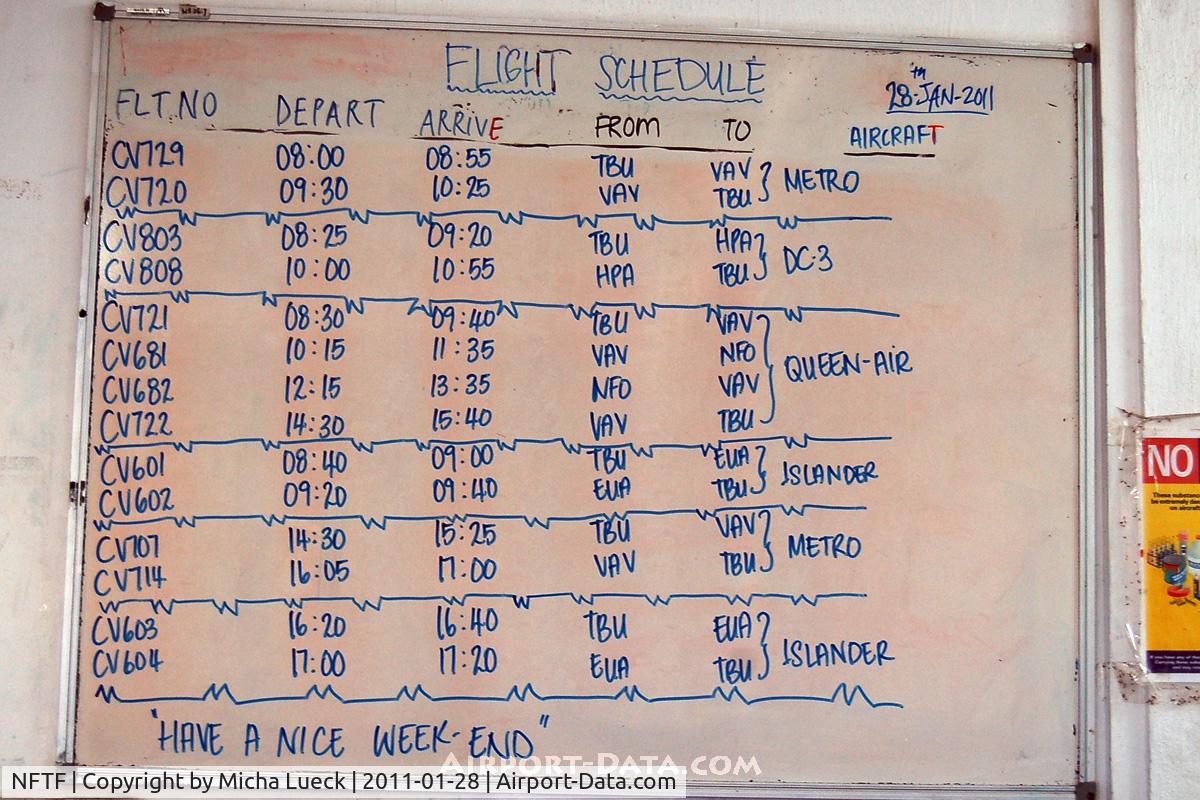 FLIGHT SCHEDULE
28TH-JAN-2011
FLT.NO DEPART ARRIVE FROM TO AIRCRAFT
CV729 08:00 08:55 TBU VAV METRO
CV720 09:30 10:25 VAV TBU
CV803 08:25 09:20 TBU HPA DC-3
CV808 10:00 10:55 HPA TBU
CV721 08:30 09:40 TBU VAV QUEEN-AIR
CV681 10:15 11:35 VAV NFO
CV682 12:15 13:35 NFO VAV
CV722 14:30 15:40 VAV TBU
CV601 08:40 09:00 TBU EUA ISLANDER
CV602 09:20 09:40 EUA TBU
CV707 14:30 15:25 TBU VAV METRO
CV714 16:05 17:00 VAV TBU
CV603 16:20 16:40 TBU EUA ISLANDER
CV604 17:00 17:20 EUA TBU
"HAVE A NICE WEEK-END"
NO
These
be extremely
on
AIRPORT-DATA.COM
NFTF | Copyright by Micha Lueck | 2011-01-28 | Airport-Data.com